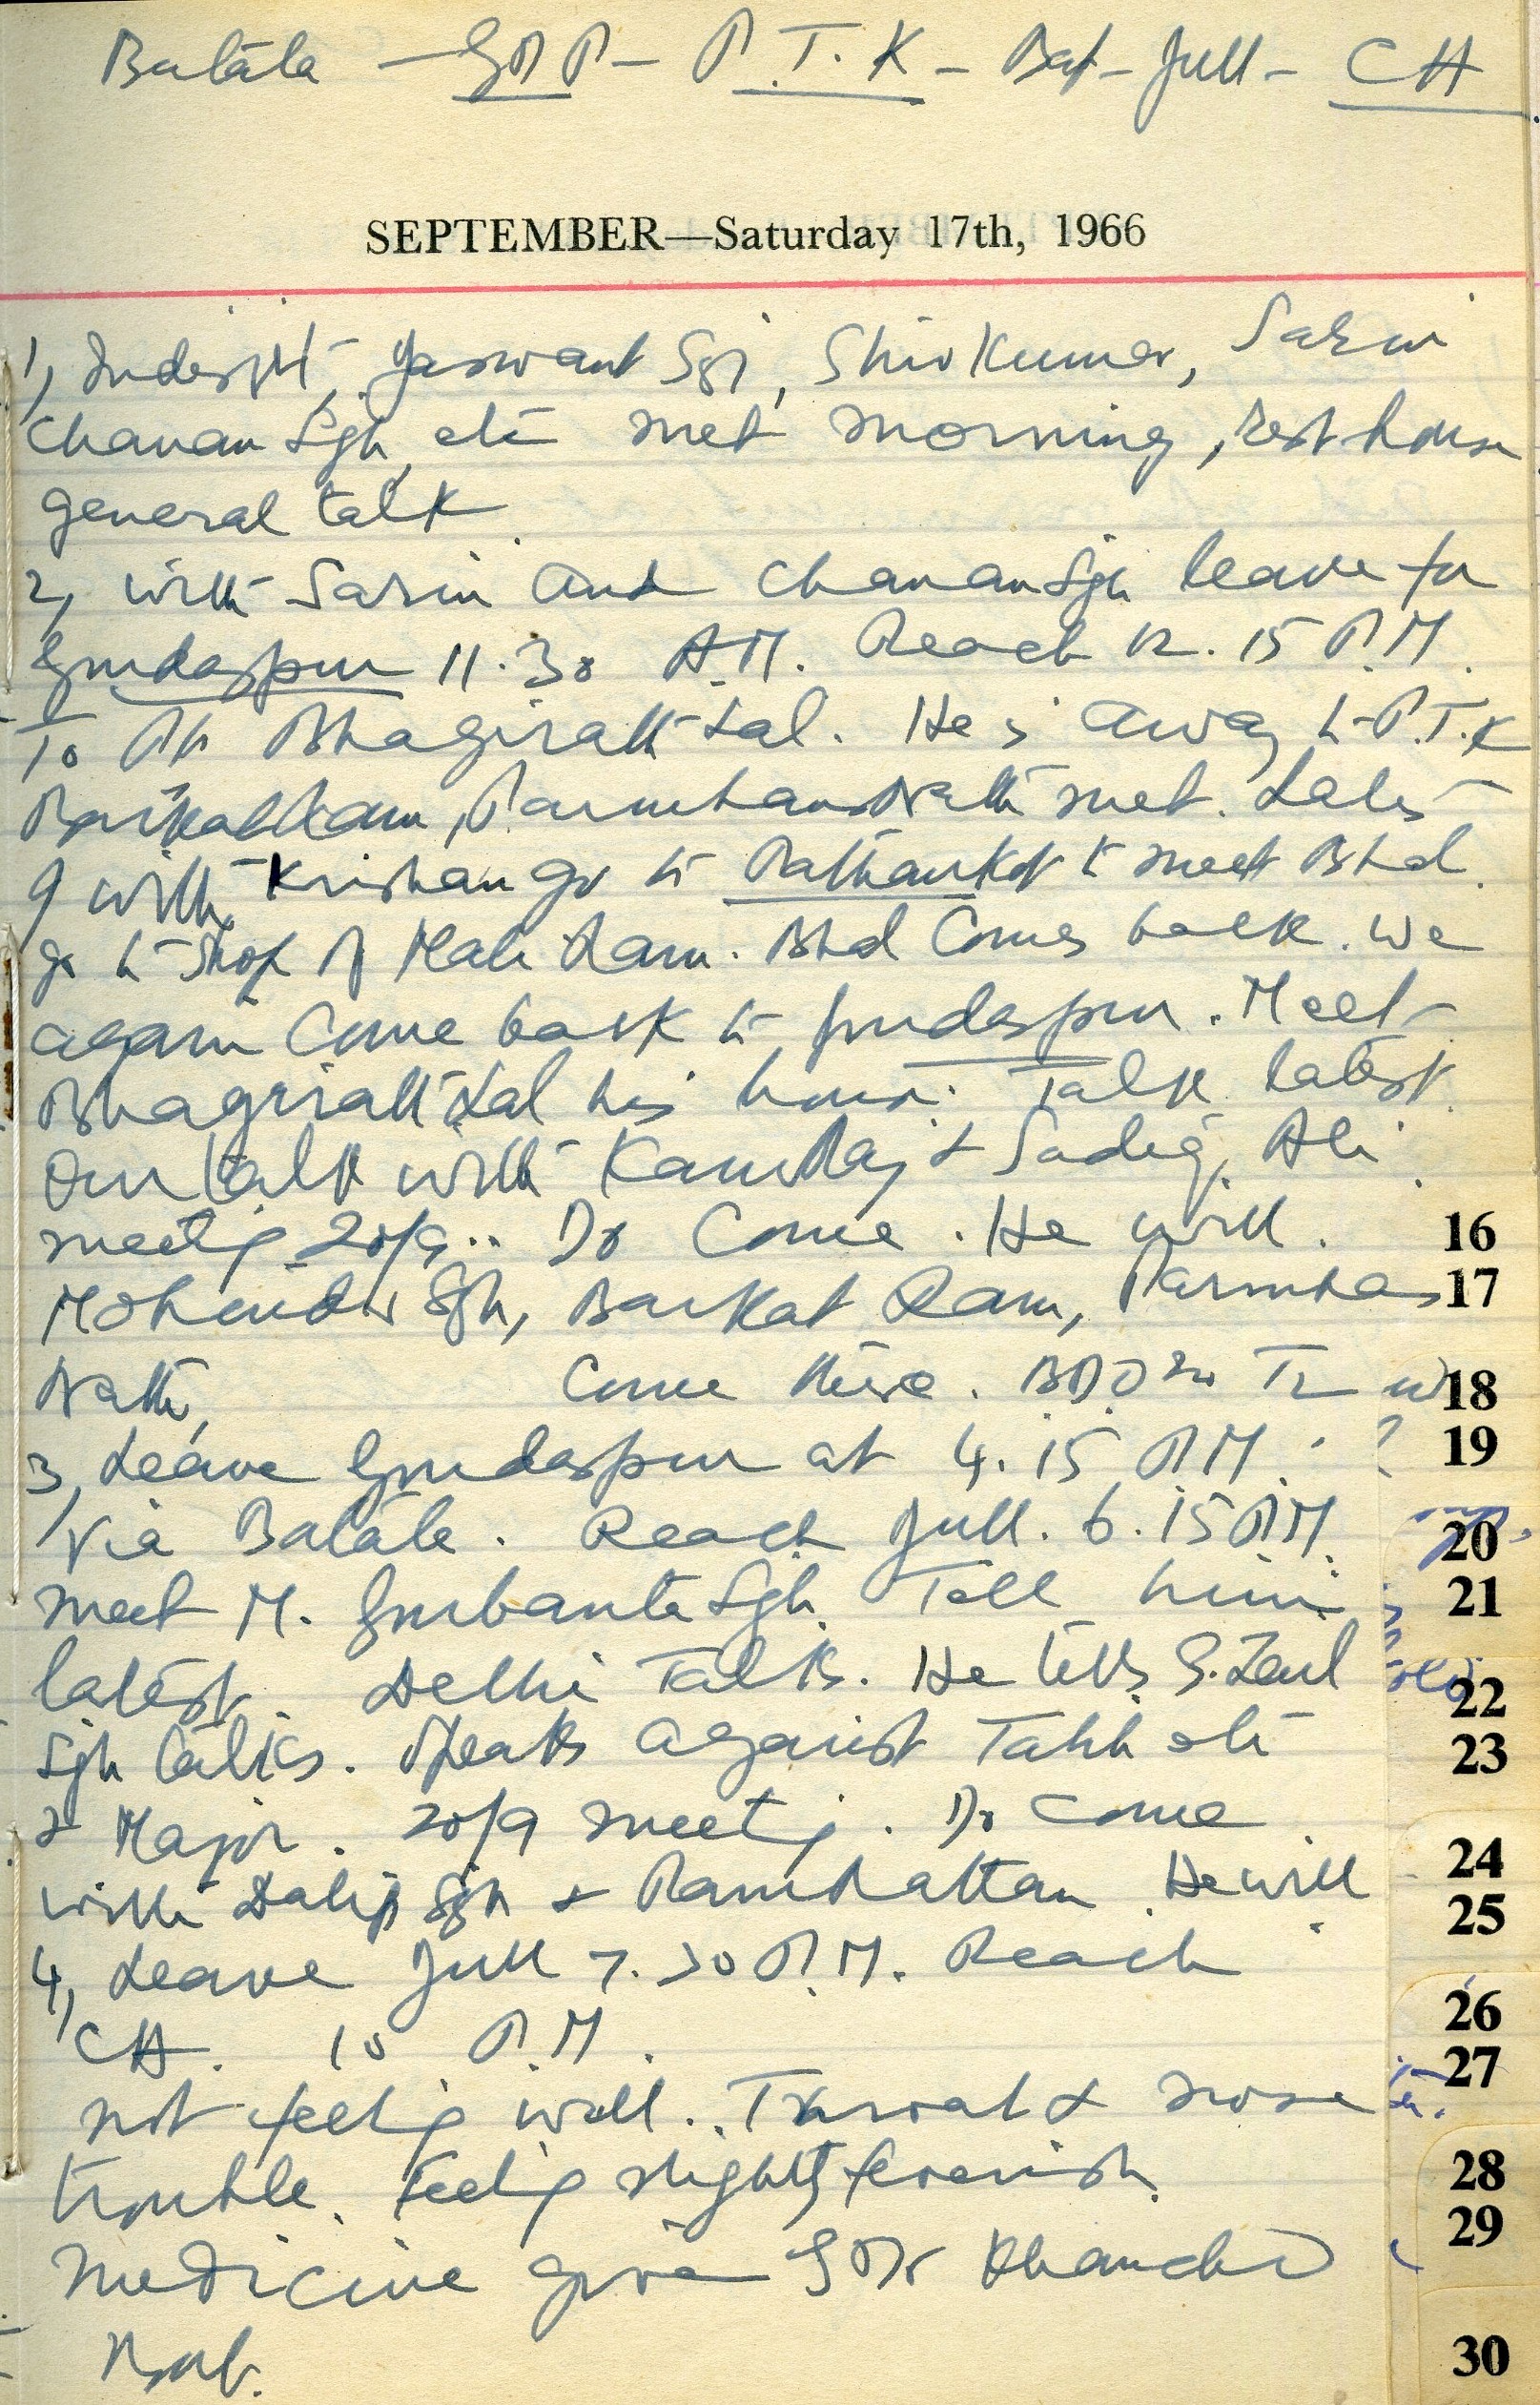 Batala — GDP — P.T.K — Bat — Jull — CH
SEPTEMBER—Saturday 17th, 1966
1, Inderjit, Jaswant Sgh, Shiv Kumar, Sarin
Chanan Sgh, etc met morning, Rest house
general talk
2, with Sarin and Chanan Sgh leave for
Gurdaspur 11.30 A.M. Reach 12.15 P.M.
To Bhagirath Lal. He is away to P.T.K
Barkat Ram, Parmhans Nath met. Later
I with Krishan go to Pathankot to meet Bhd.
go to shop of Mali Ram. Bhd Comes back. We
again Come back to Gurdaspur. Meet
Bhagirath Lal his house. Talk latest.
Our talk with Kamraj & Sadiq Ali.
meeting 20/9.. Do Come. He will.
Mohinder Sgh, Barkat Ram, Parmhans
Nath, Come there.
3, Leave Gurdaspur at 4.15 P.M.
Via Batala. Reach Jull. 6.15 P.M.
meet M. Gurbanta Sgh. Tell him
latest. Delhi Talks. He tells G. Zail
Sgh talks. Speaks against etc
& Major. 20/9 meeting. Do Come
with Dalip Sgh & Ram Rattan. He will
4, Leave Jull 7.30 P.M. Reach
CH. 10 P.M.
not feeling well. Throat & nose
trouble. Feeling slightly feverish.
medicine given
16
17
18
19
20
21
22
23
24
25
26
27
28
29
30